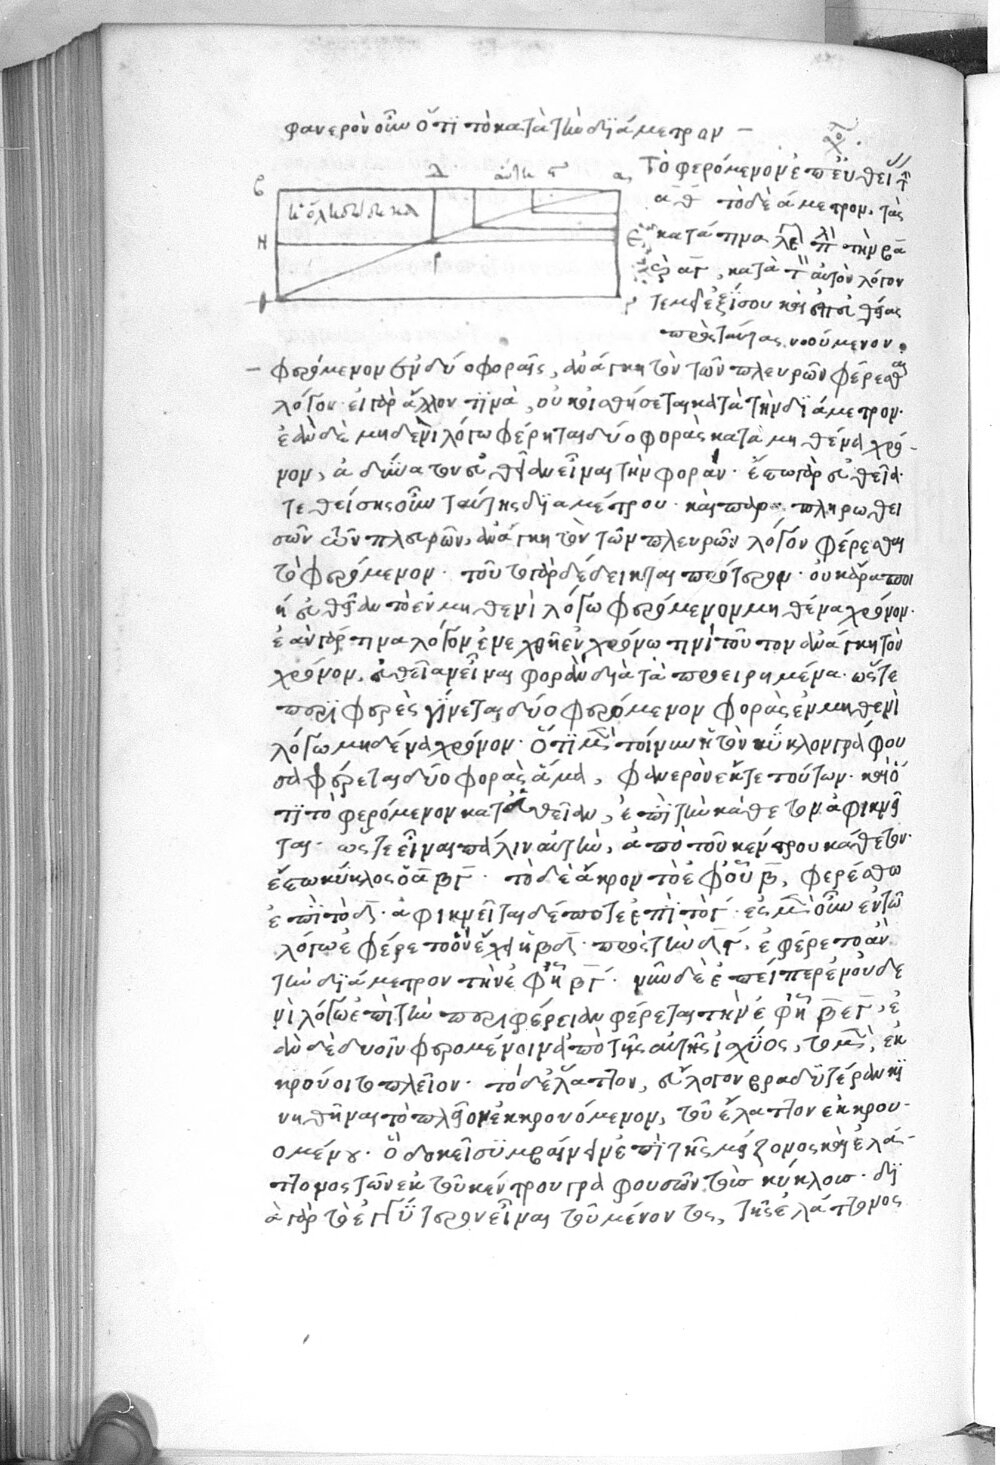 φανερὸν οὖν ὅτι τὸ κατὰ τὴν διάμετρον
Τὸ φερόμενον ἐπ εὐθεί
τὸ δὲ ἀ μετρον. τὰς
κατά τινα τὴν βα
ς αγ, κατὰ τ αὐτὸν λόγον
τεμ δεξίσου καὶ εὐθείας
πρὸς ταύτας νοούμενον.
β Δ α
Η ε
Γ
φερόμενον ἐν δύο φοραῖς, ἀνάγκη τὸν τῶν πλευρῶν φέρεσθαι
λόγον· εἰ γὰρ ἄλλον τινὰ, οὐκ οἰσθήσεται κατὰ τὴν διάμετρον·
ἐὰν δὲ μηδενὶ λόγω φέρηται δύο φορὰς κατὰ μηθένα χρό-
νον, ἀδύνατον εὐθεῖαν εἶναι τὴν φοράν· ἔστω γὰρ εὐθεῖα·
τεθείσης οὖν ταύτης διαμέτρου· καὶ παραπληρωθει
σῶν τῶν πλευρῶν, ἀνάγκη τὸν τῶν πλευρῶν λόγον φέρεσθαι
τὸ φερόμενον· τοῦτο γὰρ δέδεικται πρότερον· οὐκ ἄρα ποι
ή εὐθεῖαν τὸ ἐν μηθενὶ λόγω φερόμενον μηθένα χρόνον·
ἐὰν γάρ τινα λόγον ἐνεχθῆ ἐν χρόνω τινὶ τοῦτον ἀνάγκη τὸν
χρόνον, εὐθεῖαν εἶναι φορὰν διὰ τὰ προειρημένα· ὥστε
περιφερὲς γίνεται δύο φερόμενον φορὰς ἐν μηθενὶ
λόγω μηδένα χρόνον· ὅτι μὲν τοίνυν ἡ τὸν κύκλον γράφου
σα φέρεται δύο φορὰς ἅμα, φανερὸν ἔκ τε τούτων· καὶ ὅ
τι τὸ φερόμενον κατ εὐθεῖαν, ἐπὶ τὴν κάθετον ἀφικνεῖ
ται· ὥστε εἶναι πάλιν αὐτὴν, ἀπὸ τοῦ κέντρου κάθετον·
ἔστω κύκλος ὁ αβγ· τὸ δὲ ἄκρον τὸ ἐφ οὗ β, φερέσθω
ἐπὶ τὸ δ· ἀφικνεῖται δέ ποτε ἐπὶ τὸ γ· εἰ μὲν οὖν ἐν τῶ
λόγω ἐφέρετο ὃν ἔχει ἡ βδ· πρὸς τὴν δγ, ἐφέρετο ἂν
τὴν διάμετρον τὴν ἐφ ἧ βγ· νῦν δὲ ἐπείπερ ἐν οὐδε
νὶ λόγω ἐπὶ τὴν περιφέρειαν φέρεται τὴν ἐφ ἧ βεγ, ἐ
ὰν δὲ δυοῖν φερομένοιν ἀπὸ τῆς αὐτῆς ἰσχύος, τὸ μὲν, ἐκ
κρούοιτο πλεῖον· τὸ δὲ ἔλαττον, εὔλογον βραδύτερον κι
νηθῆναι τὸ πλεῖον ἐκκρουόμενον, τοῦ ἔλαττον ἐκκρου-
ομένου. ὃ δοκεῖ συμβαίνειν ἐπὶ τῆς μείζονος καὶ ἐλά-
ττονος τῶν ἐκ τοῦ κέντρου γραφουσῶν τοὺς κύκλους· δι
ὰ γὰρ τὸ ἐγγύτερον εἶναι τοῦ μένοντος, τῆς ἐλάττονος